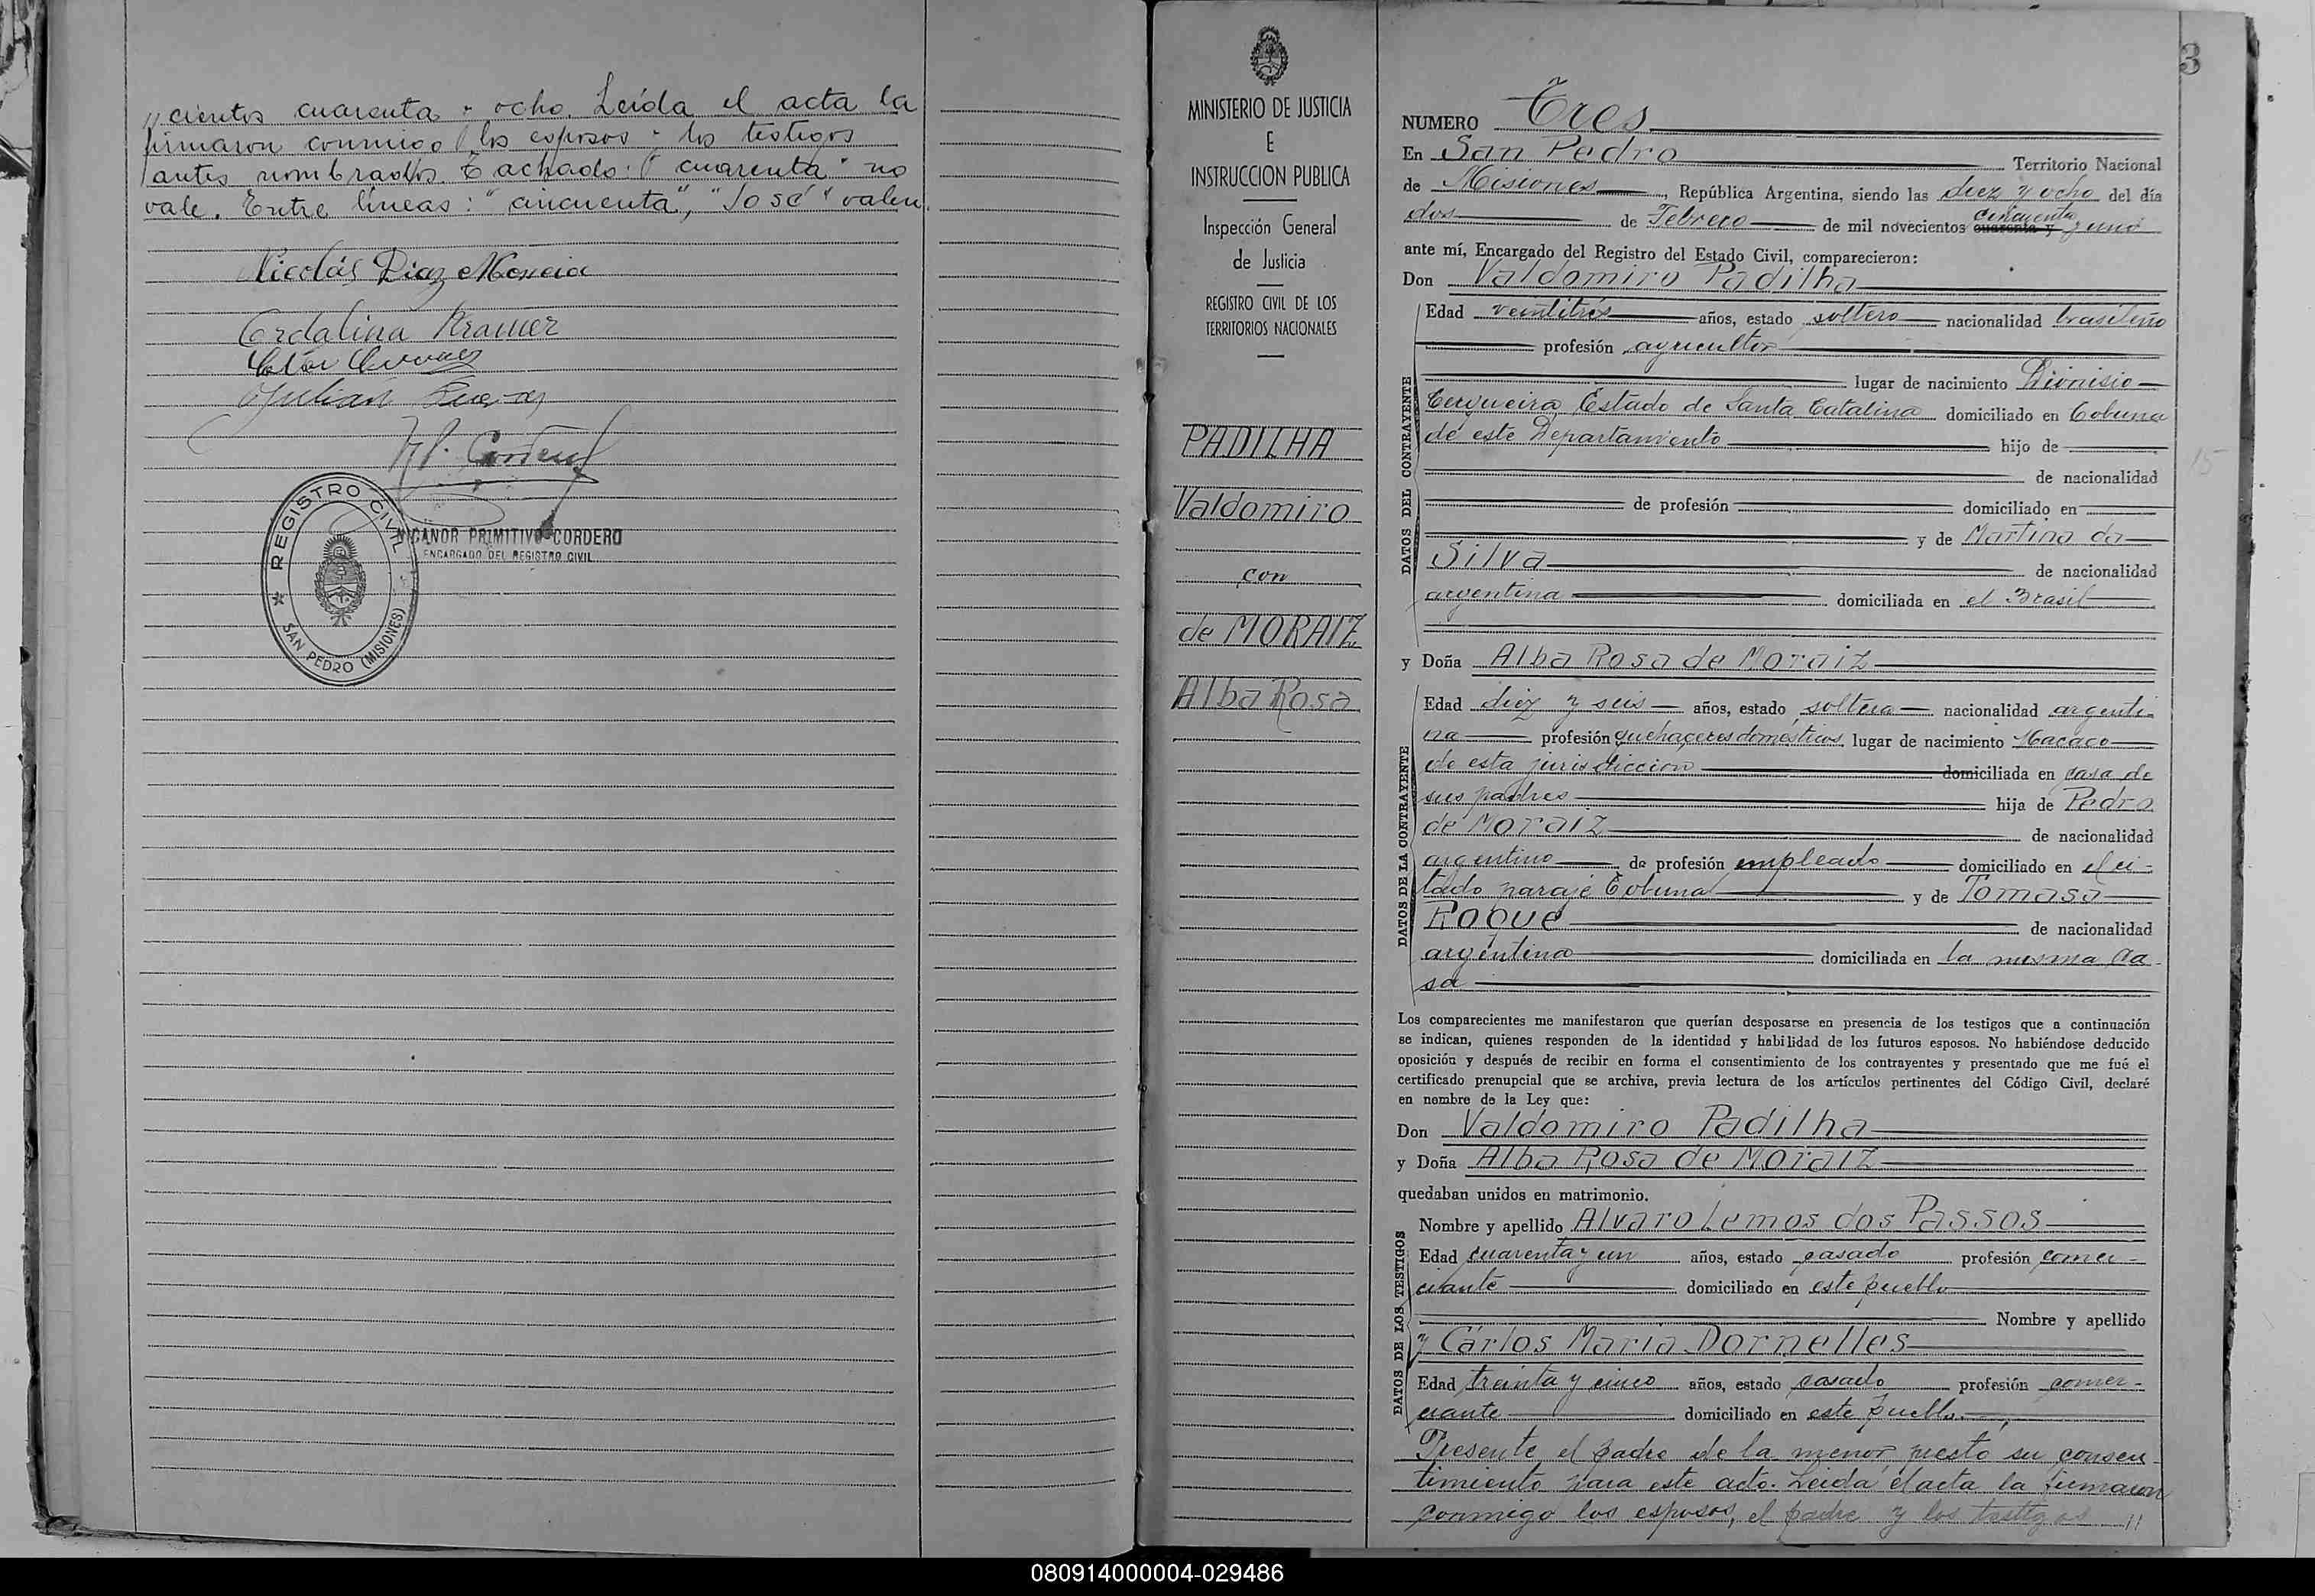 "cientos cuarenta y ocho. Leída el acta la
firmaron conmigo los esposos y los testigos
antes nombrados. Tachado: "cuarenta" no
vale. Entre líneas: "cincuenta", "José" valen.
Nicolás Diaz
Cordalina Kramer
Julian
N.P. Cordero
REGISTRO CIVIL
SAN PEDRO (MISIONES)
NICANOR PRIMITIVO CORDERO
ENCARGADO DEL REGISTRO CIVIL
MINISTERIO DE JUSTICIA
E
INSTRUCCION PUBLICA
Inspección General
de Justicia
REGISTRO CIVIL DE LOS
TERRITORIOS NACIONALES
PADILHA
Valdomiro
con
de MORAIZ
Alba Rosa
3
NUMERO Tres
En San Pedro Territorio Nacional
de Misiones, República Argentina, siendo las diez y ocho del día
cincuenta
dos de Febrero de mil novecientos cuarenta y y uno
ante mí, Encargado del Registro del Estado Civil, comparecieron:
Don Valdomiro Padilha
Edad veintitrés años, estado soltero nacionalidad brasileño
profesión agricultor
lugar de nacimiento Dionisio
Cerqueira Estado de Santa Catalina domiciliado en Tobuna
de este Departamento hijo de
de nacionalidad
de profesión domiciliado en
y de Martina da
Silva de nacionalidad
argentina domiciliada en el Brasil
DATOS DEL CONTRAYENTE
y Doña Alba Rosa de Moraiz
Edad diez y seis años, estado soltera nacionalidad argenti-
na profesión quehaceres domésticos lugar de nacimiento Macaco
de esta jurisdicción domiciliada en casa de
sus padres hija de Pedro
de Moraiz de nacionalidad
argentino de profesión empleado domiciliado en el ci-
tado paraje Tobuna y de Tomasa
Roque de nacionalidad
argentina domiciliada en la misma ca-
sa
DATOS DE LA CONTRAYENTE
15
Los comparecientes me manifestaron que querían desposarse en presencia de los testigos que a continuación
se indican, quienes responden de la identidad y habilidad de los futuros esposos. No habiéndose deducido
oposición y después de recibir en forma el consentimiento de los contrayentes y presentado que me fué el
certificado prenupcial que se archiva, previa lectura de los artículos pertinentes del Código Civil, declaré
en nombre de la Ley que:
Don Valdomiro Padilha
y Doña Alba Rosa de Moraiz
quedaban unidos en matrimonio.
Nombre y apellido Alvaro Lemos dos Passos
Edad cuarenta y un años, estado casado profesión comer-
ciante domiciliado en este pueblo
Nombre y apellido
y Cárlos María Dornelles
Edad treinta y cinco años, estado casado profesión comer-
ciante domiciliado en este pueblo.
DATOS DE LOS TESTIGOS
Presente el padre de la menor prestó su consen-
timiento para este acto. Leída el acta la firmaron
conmigo los esposos, el padre y los testigos "
080914000004-029486